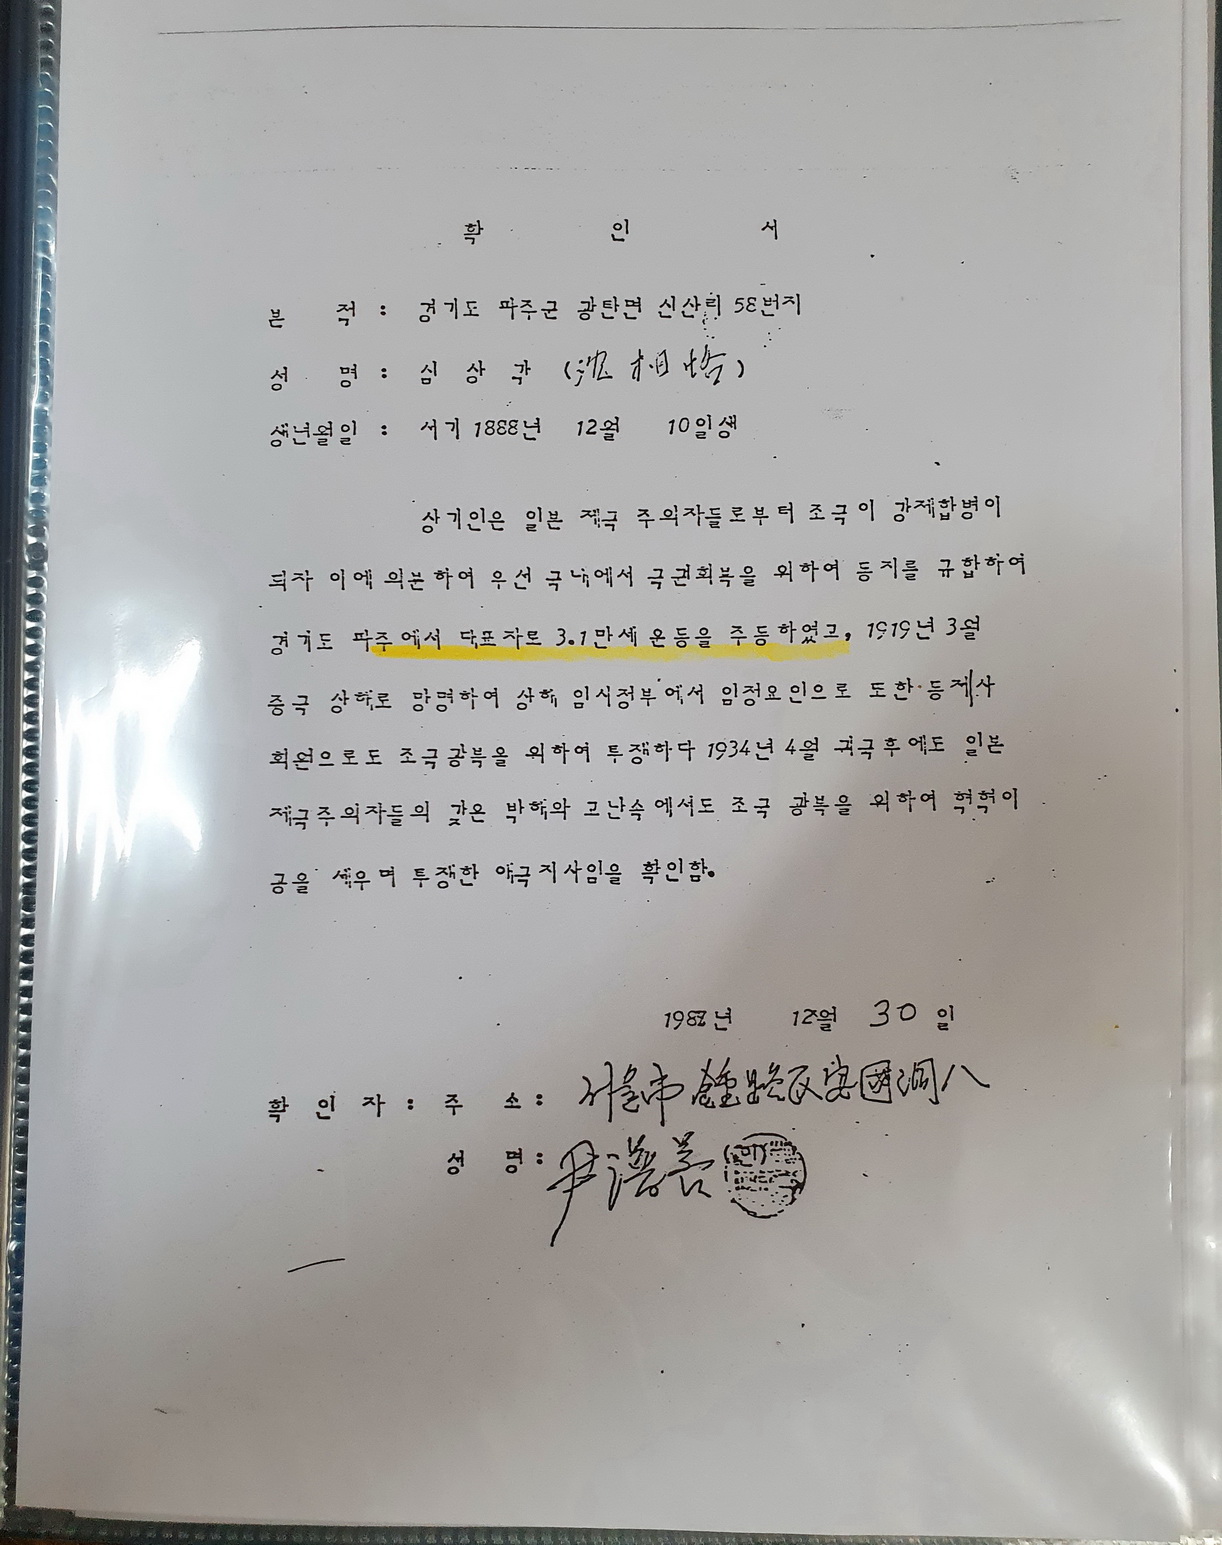 확 인 서
본 적 : 경기도 파주군 광탄면 신산리 58번지
성 명 : 심 상 각 (沈 相 恪)
생년월일 : 서기 1888년 12월 10일생
상기인은 일본 제국 주의자들로부터 조국이 강제합병이
되자 이에 의분하여 우선 국내에서 국권회복을 위하여 동지를 규합하여
경기도 파주에서 대표자로 3.1만세 운동을 주동하였고, 1919년 3월
중국 상해로 망명하여 상해 임시정부에서 임정요인으로 또한 동제사
회원으로도 조국광복을 위하여 투쟁하다 1934년 4월 귀국후에도 일본
제국주의자들의 갖은 박해와 고난속에서도 조국 광복을 위하여 혁혁이
공을 세우며 투쟁한 애국지사임을 확인함.
년 12월 30 일
확 인 자 : 주 소 : 서울市 鍾路区 安國洞八
성 명 : 尹潽善